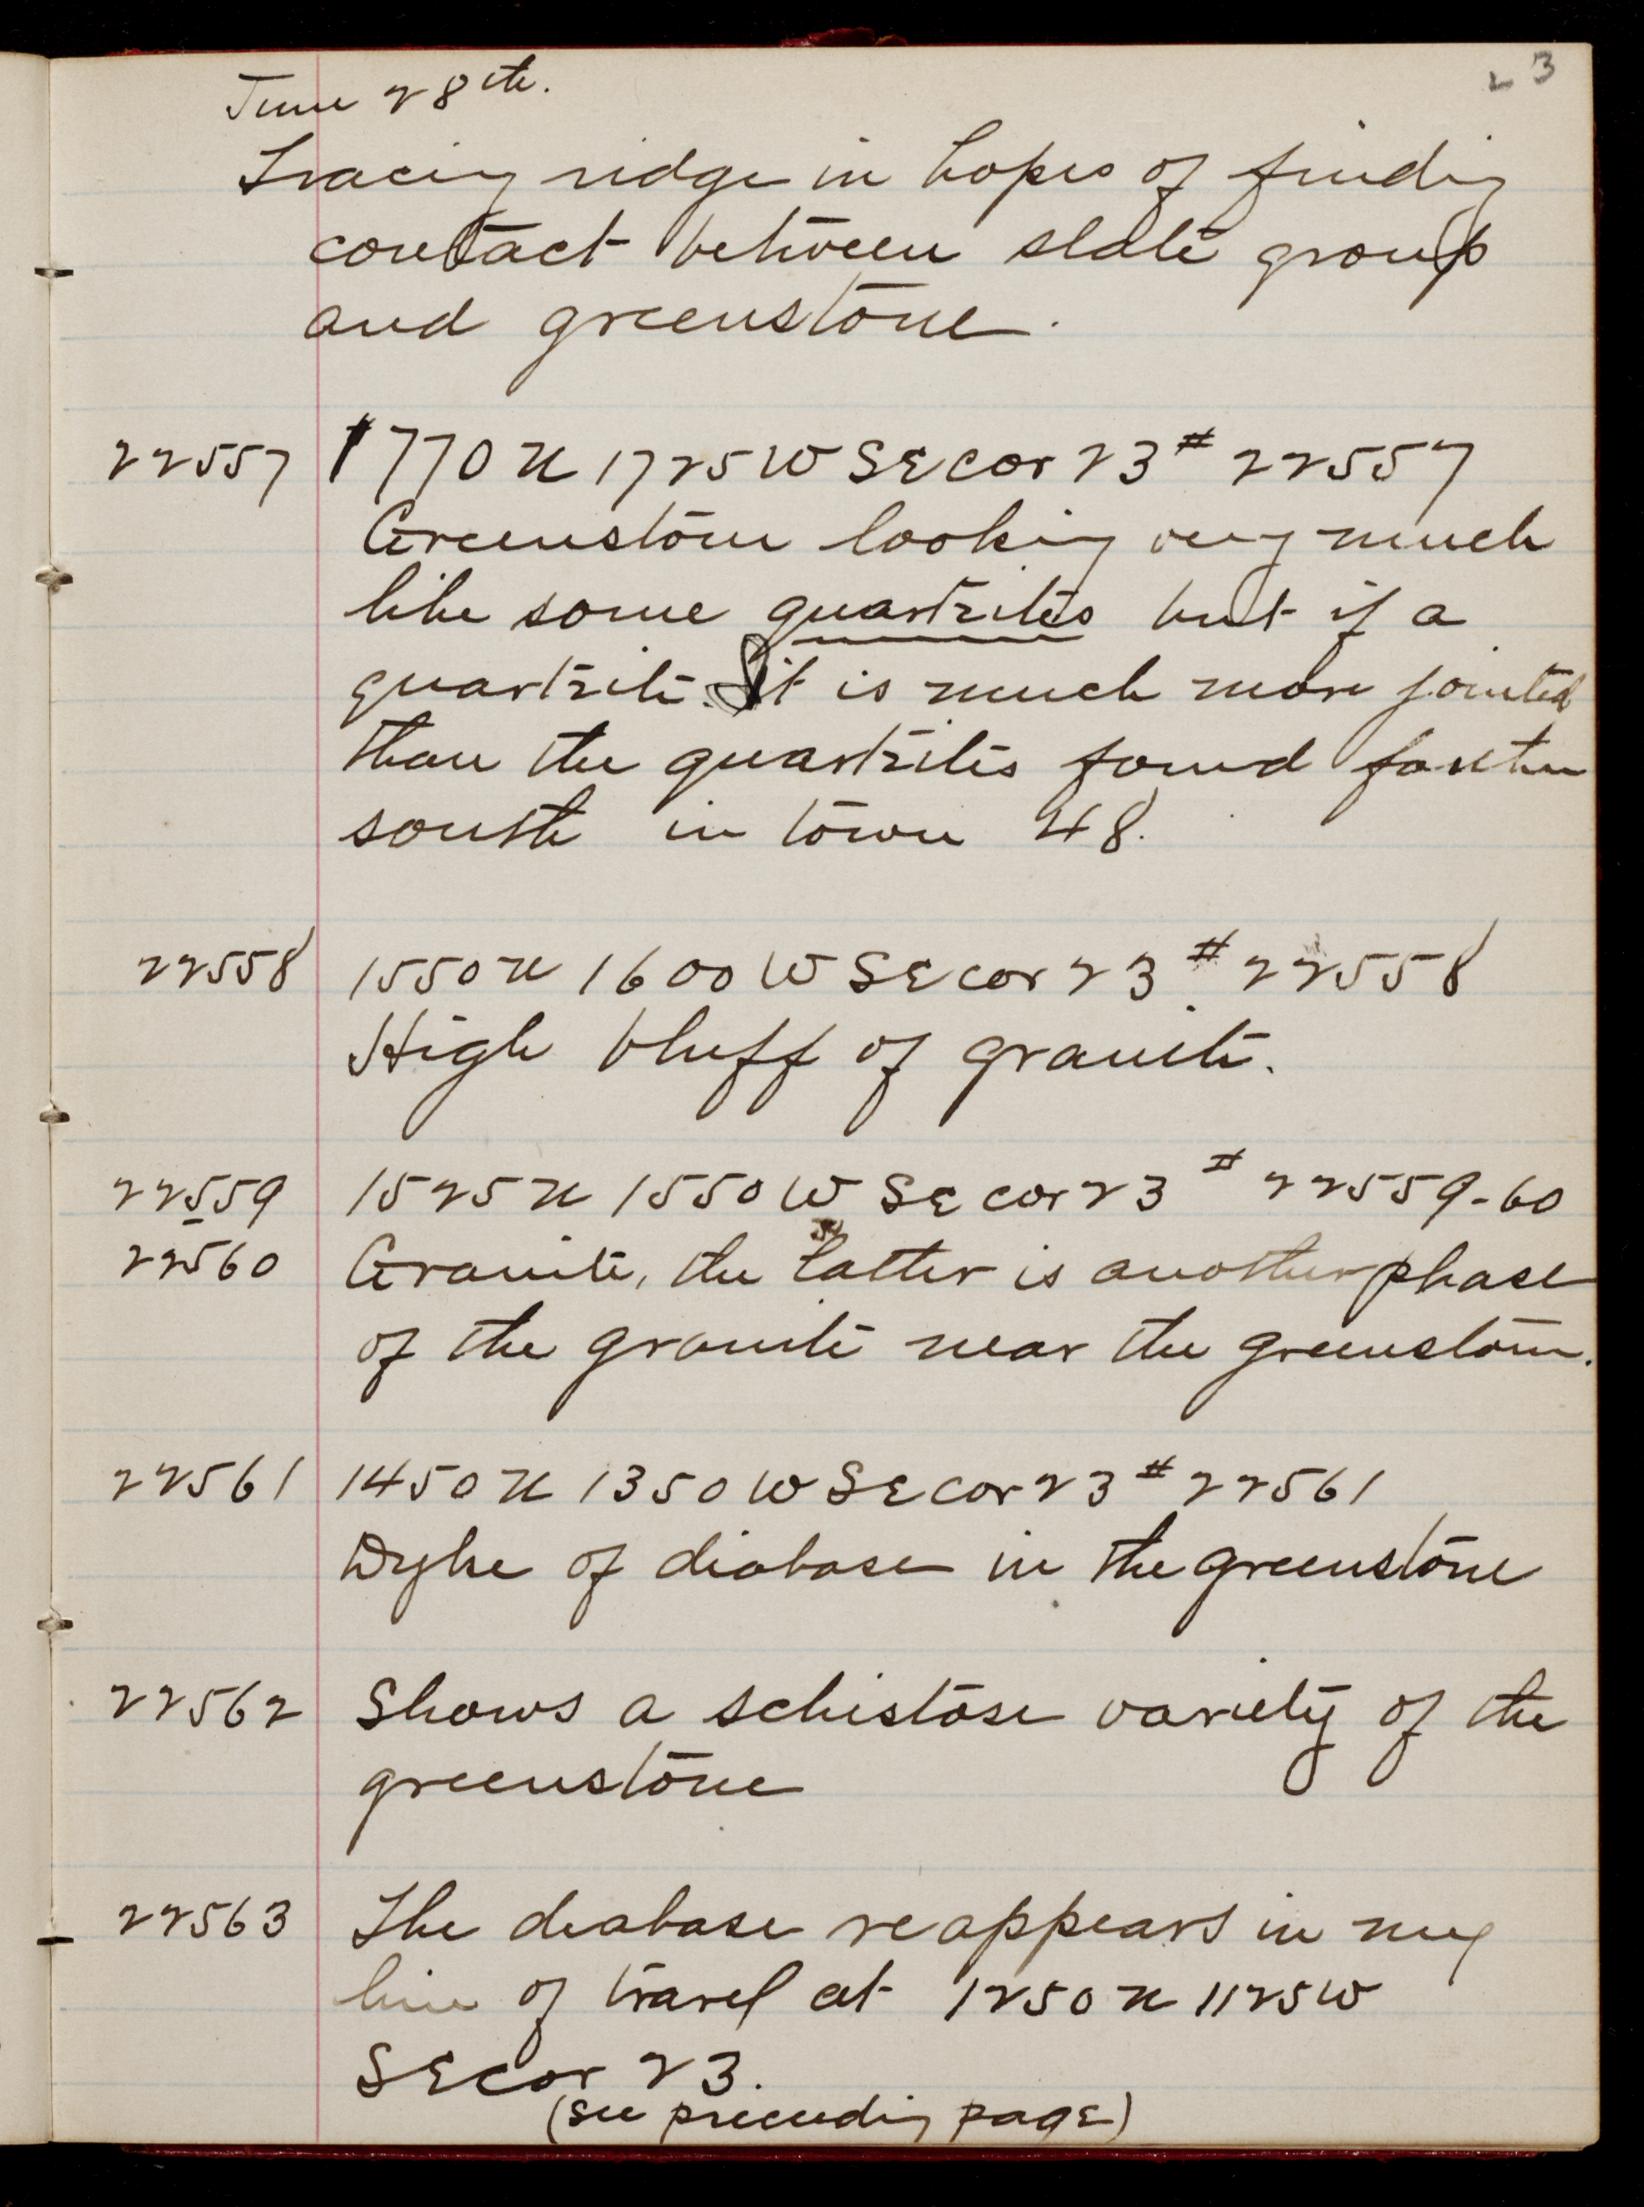 23
June 28th.
Tracing ridge in hopes of finding
contact between slate group
and greenstone.
22557 1770 N 1725 W SE cor 23 # 22557
Greenstone looking very much
like some quartzites but if a
quartzite it is much more jointed
than the quartzites found farther
south in town 48.
22558 1550 N 1600 W SE cor 23 # 22558
High bluff of granite.
22559 1525 N 1550 W SE cor 23 # 22559-60
22560 Granite, the latter is another phase
of the granite near the greenstone.
22561 1450 N 1350 W SE cor 23 # 22561
Dyke of diabase in the greenstone
22562 Shows a schistose variety of the
greenstone
22563 The diabase reappears in my
line of travel at 1250 N 1125 W
SE cor 23.
(see preceeding page)